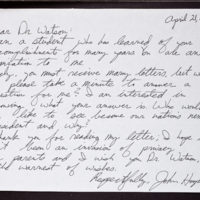 April 21,
ear Dr Watson:
am a student who has learned of your
complishments for many years on as an
spiration to me
you must receive many letters, but w
please take a minute to answer a
estion for me? I am interested in
owing what your answer is Who would
like to see become our nations new
esident and why?
hank you for reading my letter, I hope
't been an invasion of privacy
parents and I wish you Dr Watson,
warmest of wishes.
Respectfully, John